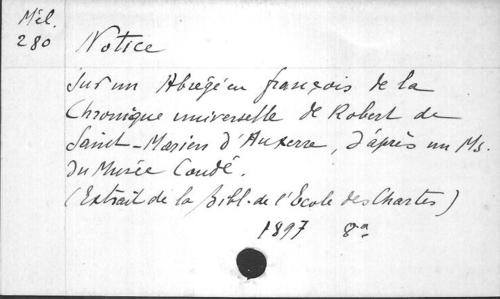 Mél.
280
Notice
sur un Abrégé en françois de la
Chronique universelle de Robert de
Saint-Marien d'Auxerre, d'après un Ms.
du Musée Condé.
(Extrait de la Bibl. de l'Ecole des Chartes)
1897 8º